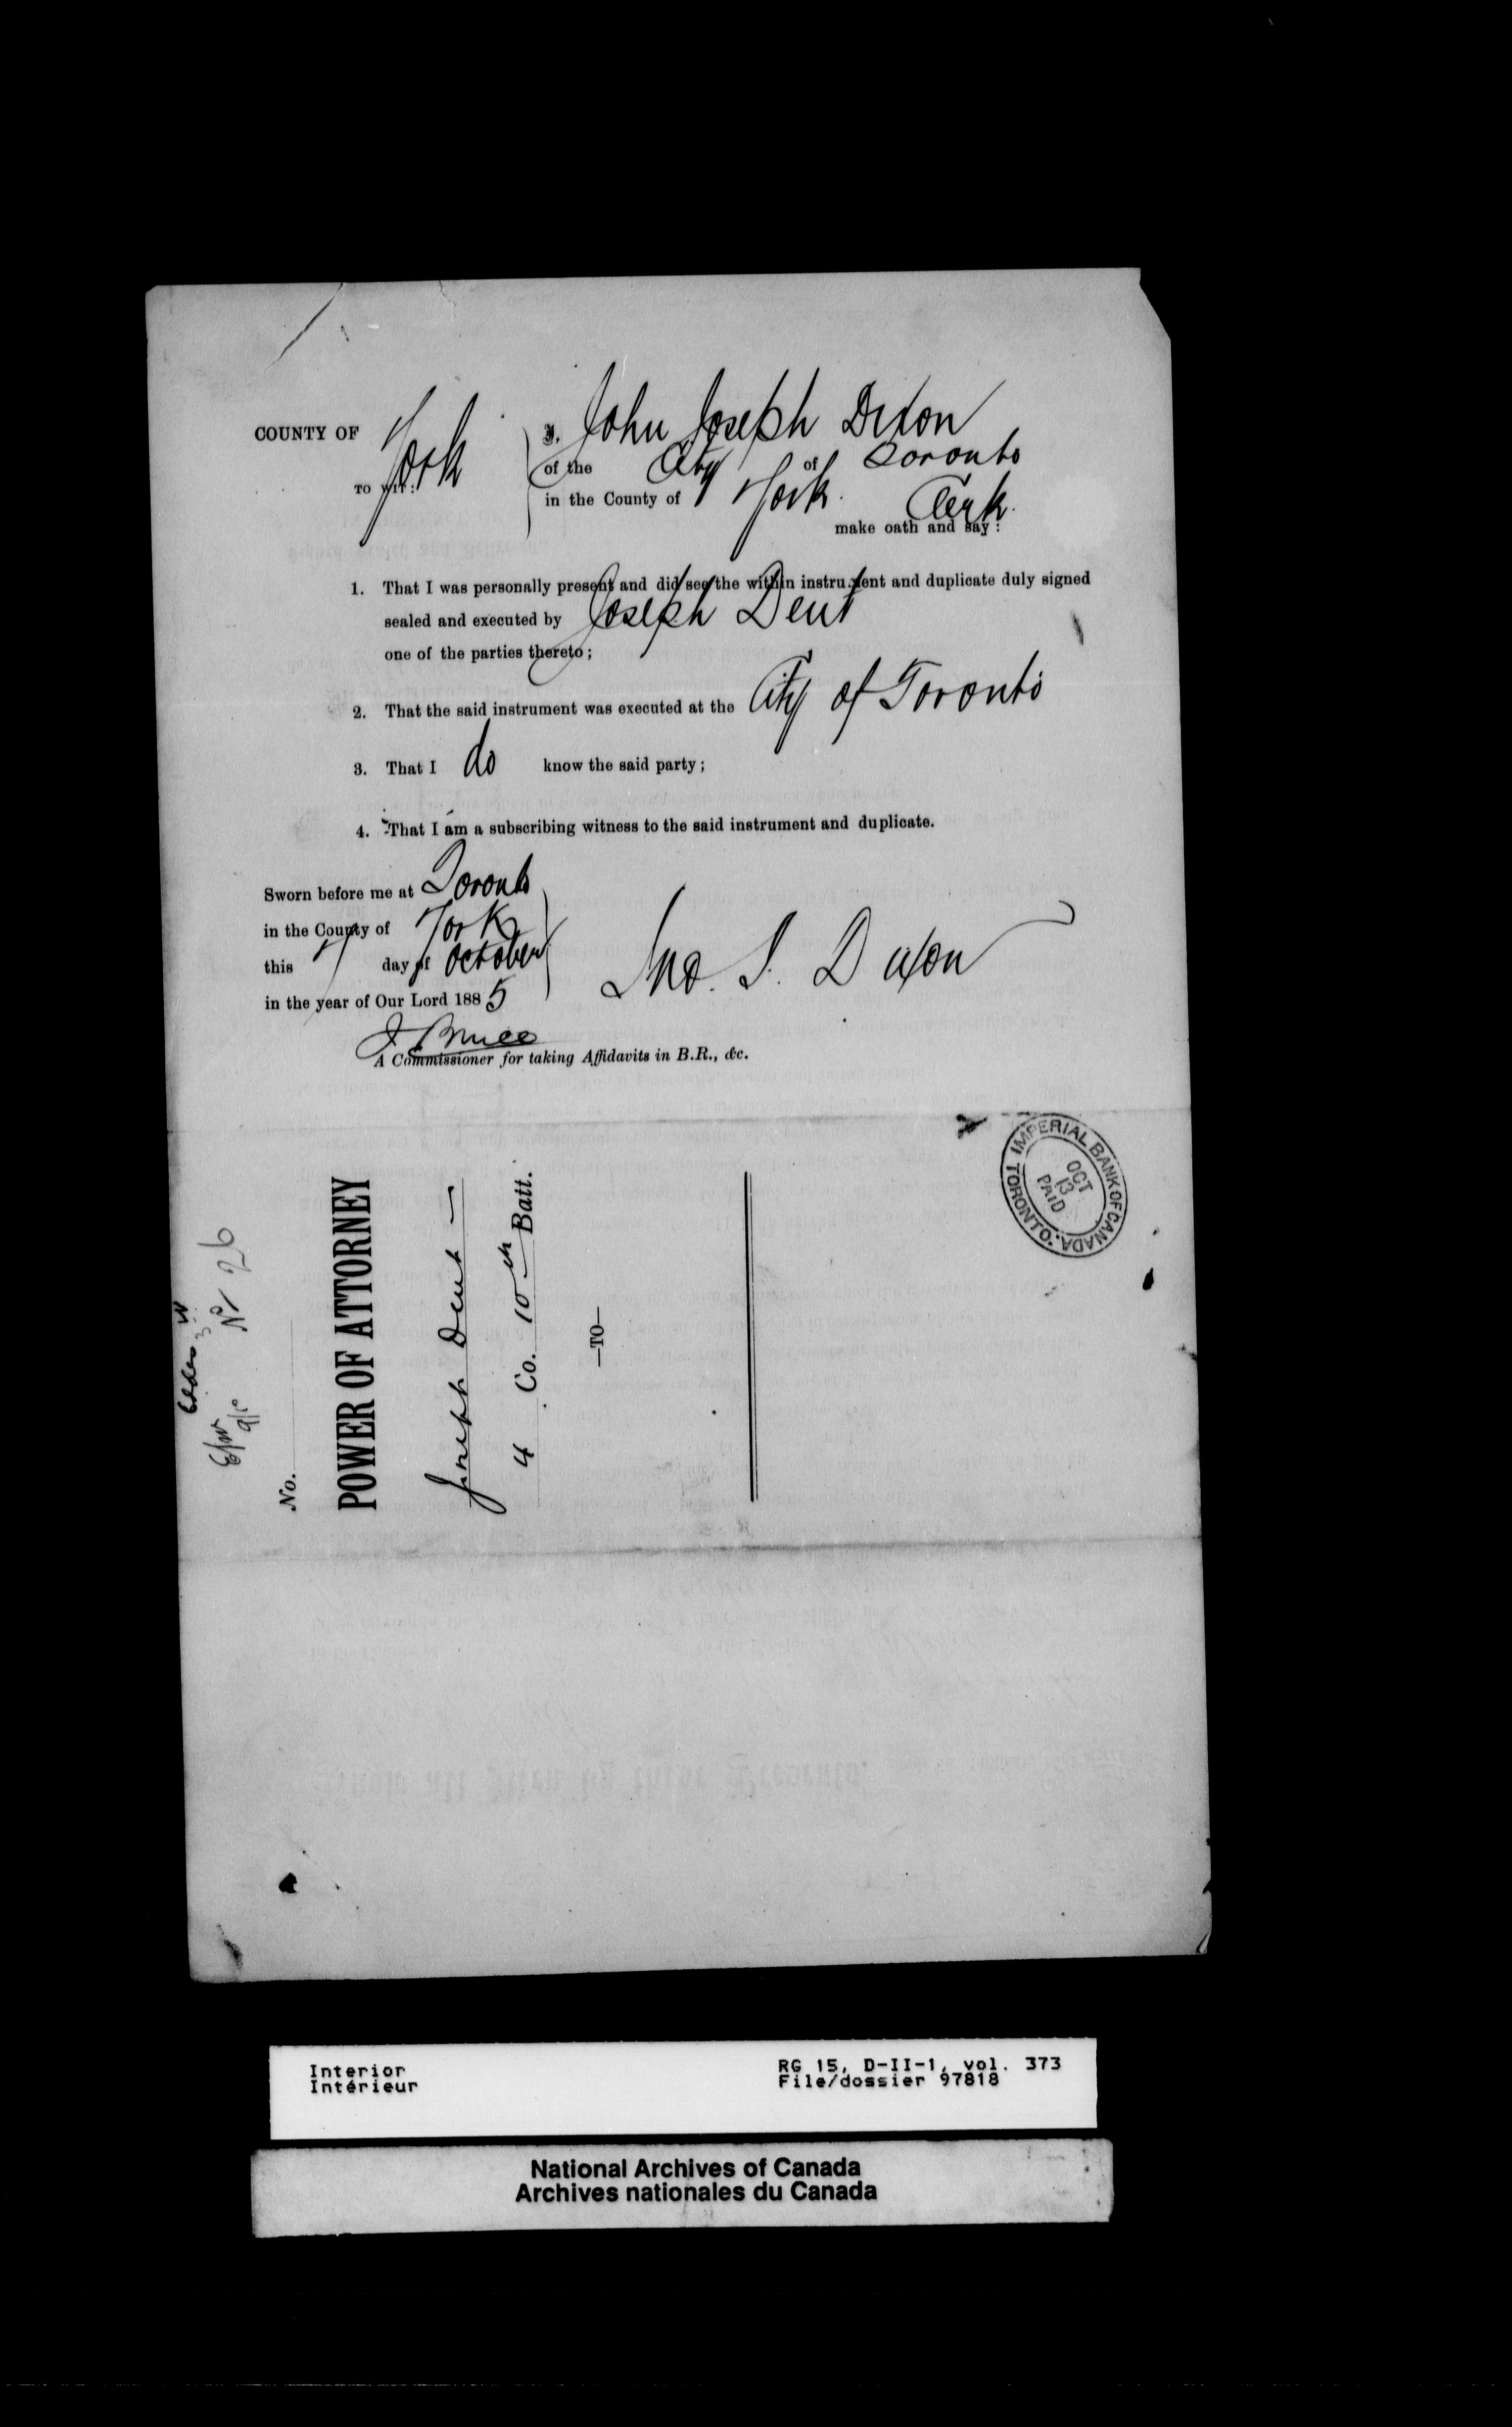 COUNTY OF York
TO WIT:
I, John Joseph Dixon
of the City of Toronto
in the County of York Clerk
make oath and say:
1. That I was personally present and did see the within instrument and duplicate duly signed
sealed and executed by Joseph Dent
one of the parties thereto;
2. That the said instrument was executed at the City of Toronto
3. That I do know the said party;
4. That I am a subscribing witness to the said instrument and duplicate.
Sworn before me at Toronto
in the County of York
this 7 day of October
in the year of Our Lord 1885
Jno. J. Dixon
J. Bruce
A Commissioner for taking Affidavits in B.R., &c.
IMPERIAL BANK OF CANADA
OCT
13
PAID
TORONTO
No 26
No.
POWER OF ATTORNEY
Joseph Dent
4 Co. 10th Batt.
—TO—
Interior
Intérieur
RG 15, D-II-1, vol. 373
File/dossier 97818
National Archives of Canada
Archives nationales du Canada